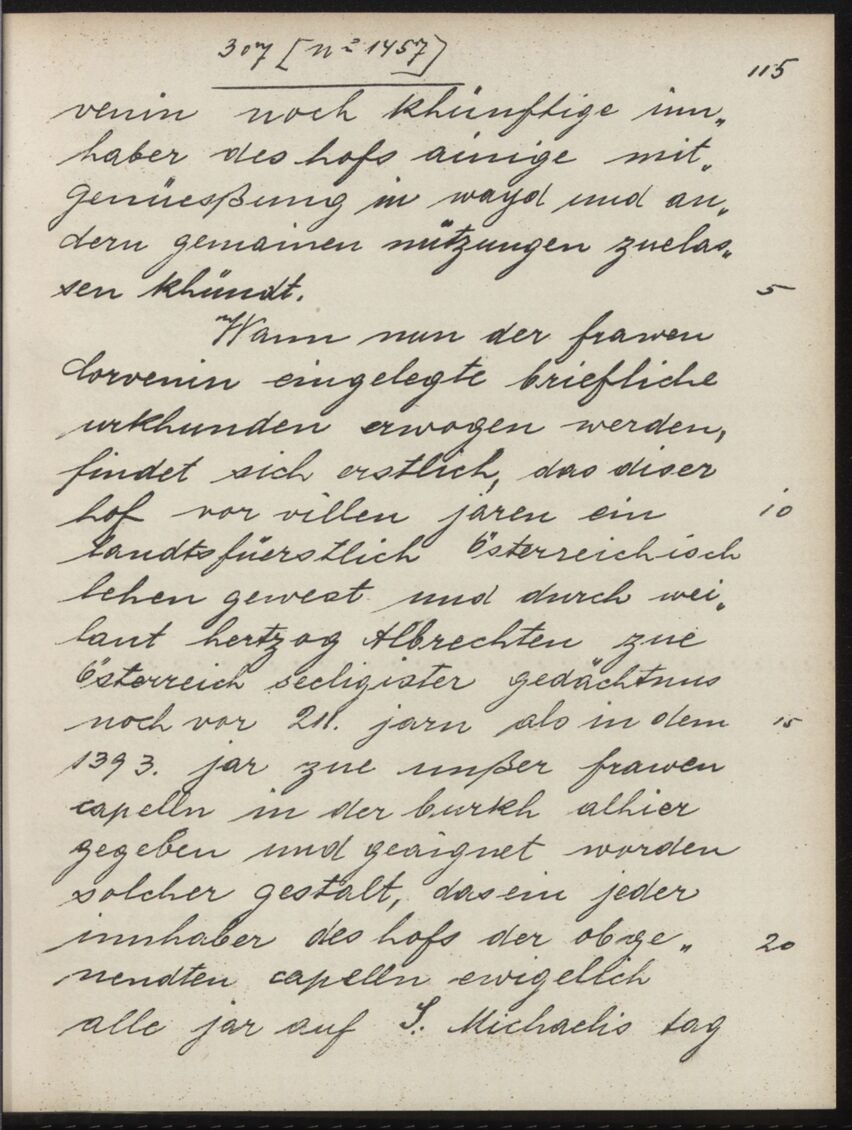 307 [n° 1457]
115
venin noch khünftige inn„
haber des hofs ainige mit„
genüesßung in wayd und an„
dern gemainen nützungen zuelas„
sen khündt. 5
Wann nun der frawen
Corvenin eingelegte briefliche
urkhunden erwogen werden,
findet sich erstlich, das diser
hof vor villen jaren ein 10
landtsfüerstlich österreichisch
lehen gewest und durch wei„
lant hertzog Albrechten zue
Österreich seeligister gedächtnus
noch vor 211. jarn als in dem 15
1393. jar zue unßer frawen
capelln in der burkh alhier
gegeben und geaignet worden
solcher gestalt, das ein jeder
innhaber des hofs der obge„ 20
nendten capelln ewigelich
alle jar auf S. Michaelis tag